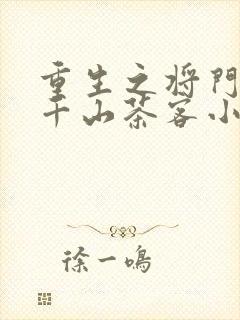 重生之将门
千山茶客小
徐一鸣